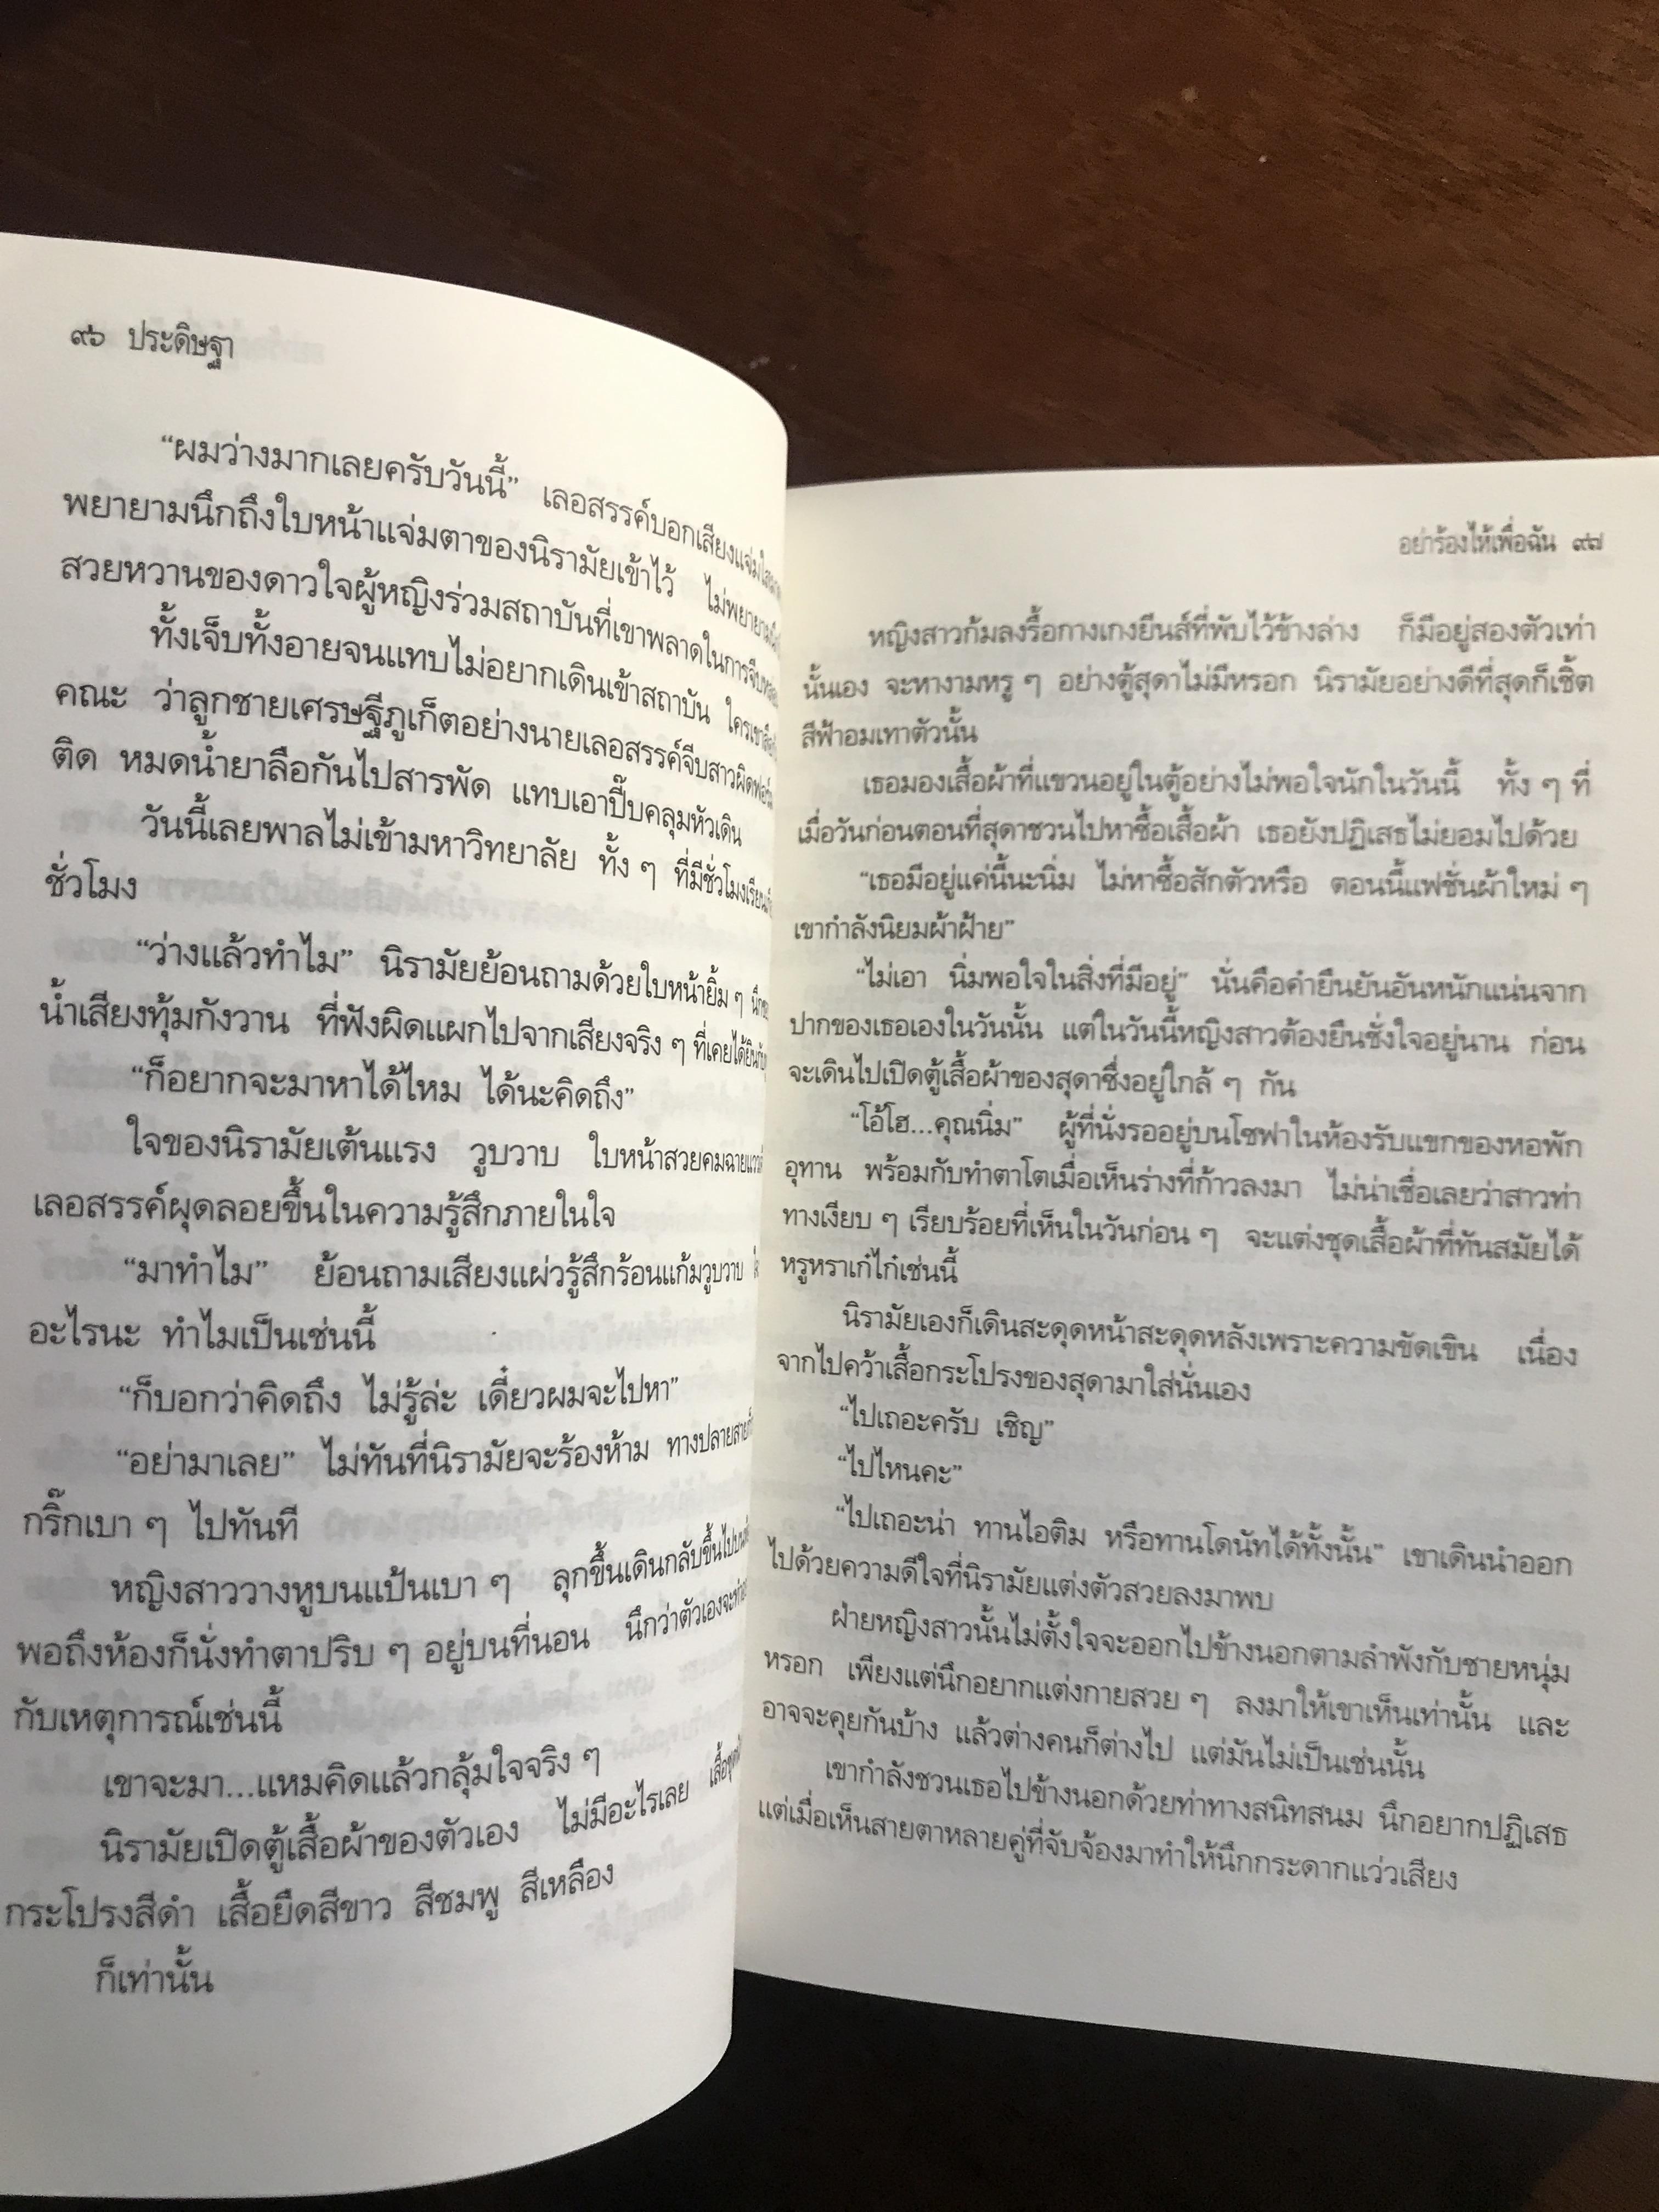 ๙๖ ประดิษฐา
“ผมว่างมากเลยครับวันนี้” เลอสรรค์บอกเสียงแจ่มใส
พยายามนึกถึงใบหน้าแจ่มตาของนิรามัยเข้าไว้ ไม่พยายาม
สวยหวานของดาวใจผู้หญิงร่วมสถาบันที่เขาพลาดในการจีบ
ทั้งเจ็บทั้งอายจนแทบไม่อยากเดินเข้าสถาบัน ใครเขา
คณะ ว่าลูกชายเศรษฐีภูเก็ตอย่างนายเลอสรรค์จีบสาวผิดฟอร์ม
ติด หมดน้ำยาลือกันไปสารพัด แทบเอาปี๊บคลุมหัวเดิน
วันนี้เลยพาลไม่เข้ามหาวิทยาลัย ทั้ง ๆ ที่มีชั่วโมงเรียน
ชั่วโมง
“ว่างแล้วทำไม” นิรามัยย้อนถามด้วยใบหน้ายิ้ม ๆ
น้ำเสียงทุ้มกังวาน ที่ฟังผิดแผกไปจากเสียงจริง ๆ ที่เคยได้ยิน
“ก็อยากจะมาหาได้ไหม ได้นะคิดถึง”
ใจของนิรามัยเต้นแรง วูบวาบ ใบหน้าสวยคมฉาย
เลอสรรค์ผุดลอยขึ้นในความรู้สึกภายในใจ
“มาทำไม” ย้อนถามเสียงแผ่วรู้สึกร้อนแก้มวูบวาบ
อะไรนะ ทำไมเป็นเช่นนี้
“ก็บอกว่าคิดถึง ไม่รู้ล่ะ เดี๋ยวผมจะไปหา”
“อย่ามาเลย” ไม่ทันที่นิรามัยจะร้องห้าม ทางปลายสาย
กริ๊กเบา ๆ ไปทันที
หญิงสาววางหูบนแป้นเบา ๆ ลุกขึ้นเดินกลับขึ้นไป
พอถึงห้องก็นั่งทำตาปริบ ๆ อยู่บนที่นอน นึกว่าตัวเองจะ
กับเหตุการณ์เช่นนี้
เขาจะมา...แหมคิดแล้วกลุ้มใจจริง ๆ
นิรามัยเปิดตู้เสื้อผ้าของตัวเอง ไม่มีอะไรเลย
กระโปรงสีดำ เสื้อยืดสีขาว สีชมพู สีเหลือง
ก็เท่านั้น
อย่าร้องไห้เพื่อฉัน ๙๗
หญิงสาวก้มลงรื้อกางเกงยีนส์ที่พับไว้ข้างล่าง ก็มีอยู่สองตัวเท่า
นั้นเอง จะหางามหรู ๆ อย่างตู้สุดาไม่มีหรอก นิรามัยอย่างดีที่สุดก็เชิ้ต
สีฟ้าอมเทาตัวนั้น
เธอมองเสื้อผ้าที่แขวนอยู่ในตู้อย่างไม่พอใจนักในวันนี้ ทั้ง ๆ ที่
เมื่อวันก่อนตอนที่สุดาชวนไปหาซื้อเสื้อผ้า เธอยังปฏิเสธไม่ยอมไปด้วย
“เธอมีอยู่แค่นี้นะนิ่ม ไม่หาซื้อสักตัวหรือ ตอนนี้แฟชั่นผ้าใหม่ ๆ
เขากำลังนิยมผ้าฝ้าย”
“ไม่เอา นิ่มพอใจในสิ่งที่มีอยู่” นั่นคือคำยืนยันอันหนักแน่นจาก
ปากของเธอเองในวันนั้น แต่ในวันนี้หญิงสาวต้องยืนชั่งใจอยู่นาน ก่อน
จะเดินไปเปิดตู้เสื้อผ้าของสุดาซึ่งอยู่ใกล้ ๆ กัน
“โอ้โฮ...คุณนิ่ม” ผู้ที่นั่งรออยู่บนโซฟาในห้องรับแขกของหอพัก
อุทาน พร้อมกับทำตาโตเมื่อเห็นร่างที่ก้าวลงมา ไม่น่าเชื่อเลยว่าสาวท่า
ทางเงียบ ๆ เรียบร้อยที่เห็นในวันก่อน ๆ จะแต่งชุดเสื้อผ้าที่ทันสมัยได้
หรูหราเก๋ไก๋เช่นนี้
นิรามัยเองก็เดินสะดุดหน้าสะดุดหลังเพราะความขัดเขิน เนื่อง
จากไปคว้าเสื้อกระโปรงของสุดามาใส่นั่นเอง
“ไปเถอะครับ เชิญ”
“ไปไหนคะ”
“ไปเถอะน่า ทานไอติม หรือทานโดนัทได้ทั้งนั้น” เขาเดินนำออก
ไปด้วยความดีใจที่นิรามัยแต่งตัวสวยลงมาพบ
ฝ่ายหญิงสาวนั้นไม่ตั้งใจจะออกไปข้างนอกตามลำพังกับชายหนุ่ม
หรอก เพียงแต่นึกอยากแต่งกายสวย ๆ ลงมาให้เขาเห็นเท่านั้น และ
อาจจะคุยกันบ้าง แล้วต่างคนก็ต่างไป แต่มันไม่เป็นเช่นนั้น
เขากำลังชวนเธอไปข้างนอกด้วยท่าทางสนิทสนม นึกอยากปฏิเสธ
แต่เมื่อเห็นสายตาหลายคู่ที่จับจ้องมาทำให้นึกกระดากแว่วเสียง